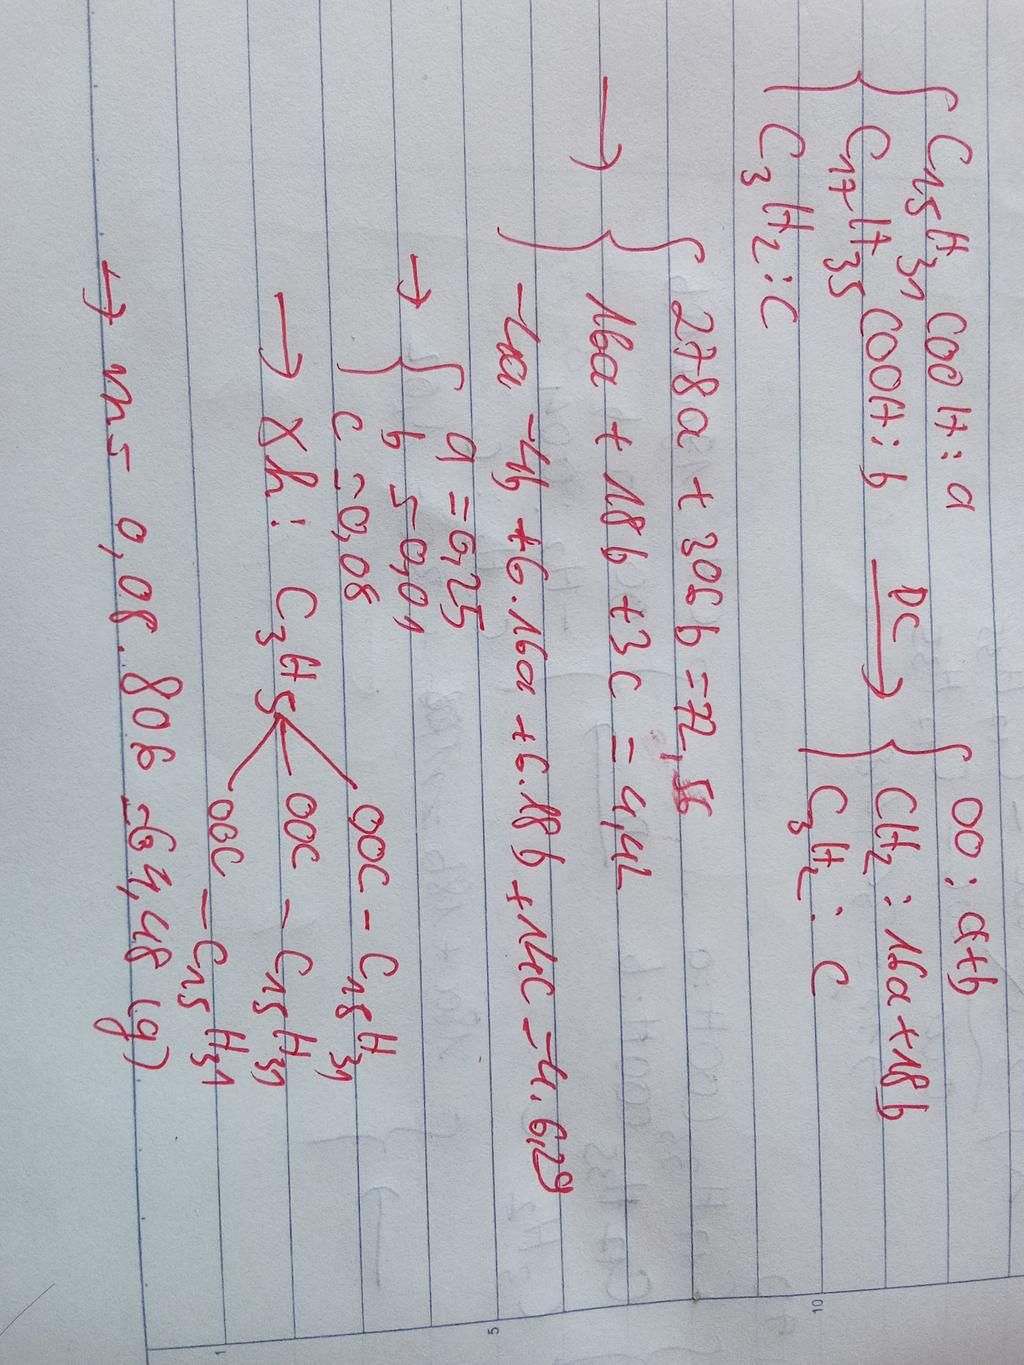 { C₁₅H₃₁COOH : a
C₁₇H₃₅COOH : b
C₃H₂ : C
ĐC →
{ OO : a+b
CH₂ : 16a + 18b
C₃H₂ : C
→ { 278a + 306b = 72,56
16a + 18b + 3c = 4,42
-4a - 4b + 6.16a + 6.18b + 14c = 4.6,29
→ { a = 0,25
b = 0,01
c = 0,08
→ Xh : C₃H₅
OOC - C₁₅H₃₁
OOC - C₁₅H₃₁
OOC - C₁₅H₃₁
→ m = 0,08 . 806 = 64,48 (g)
10
5
1